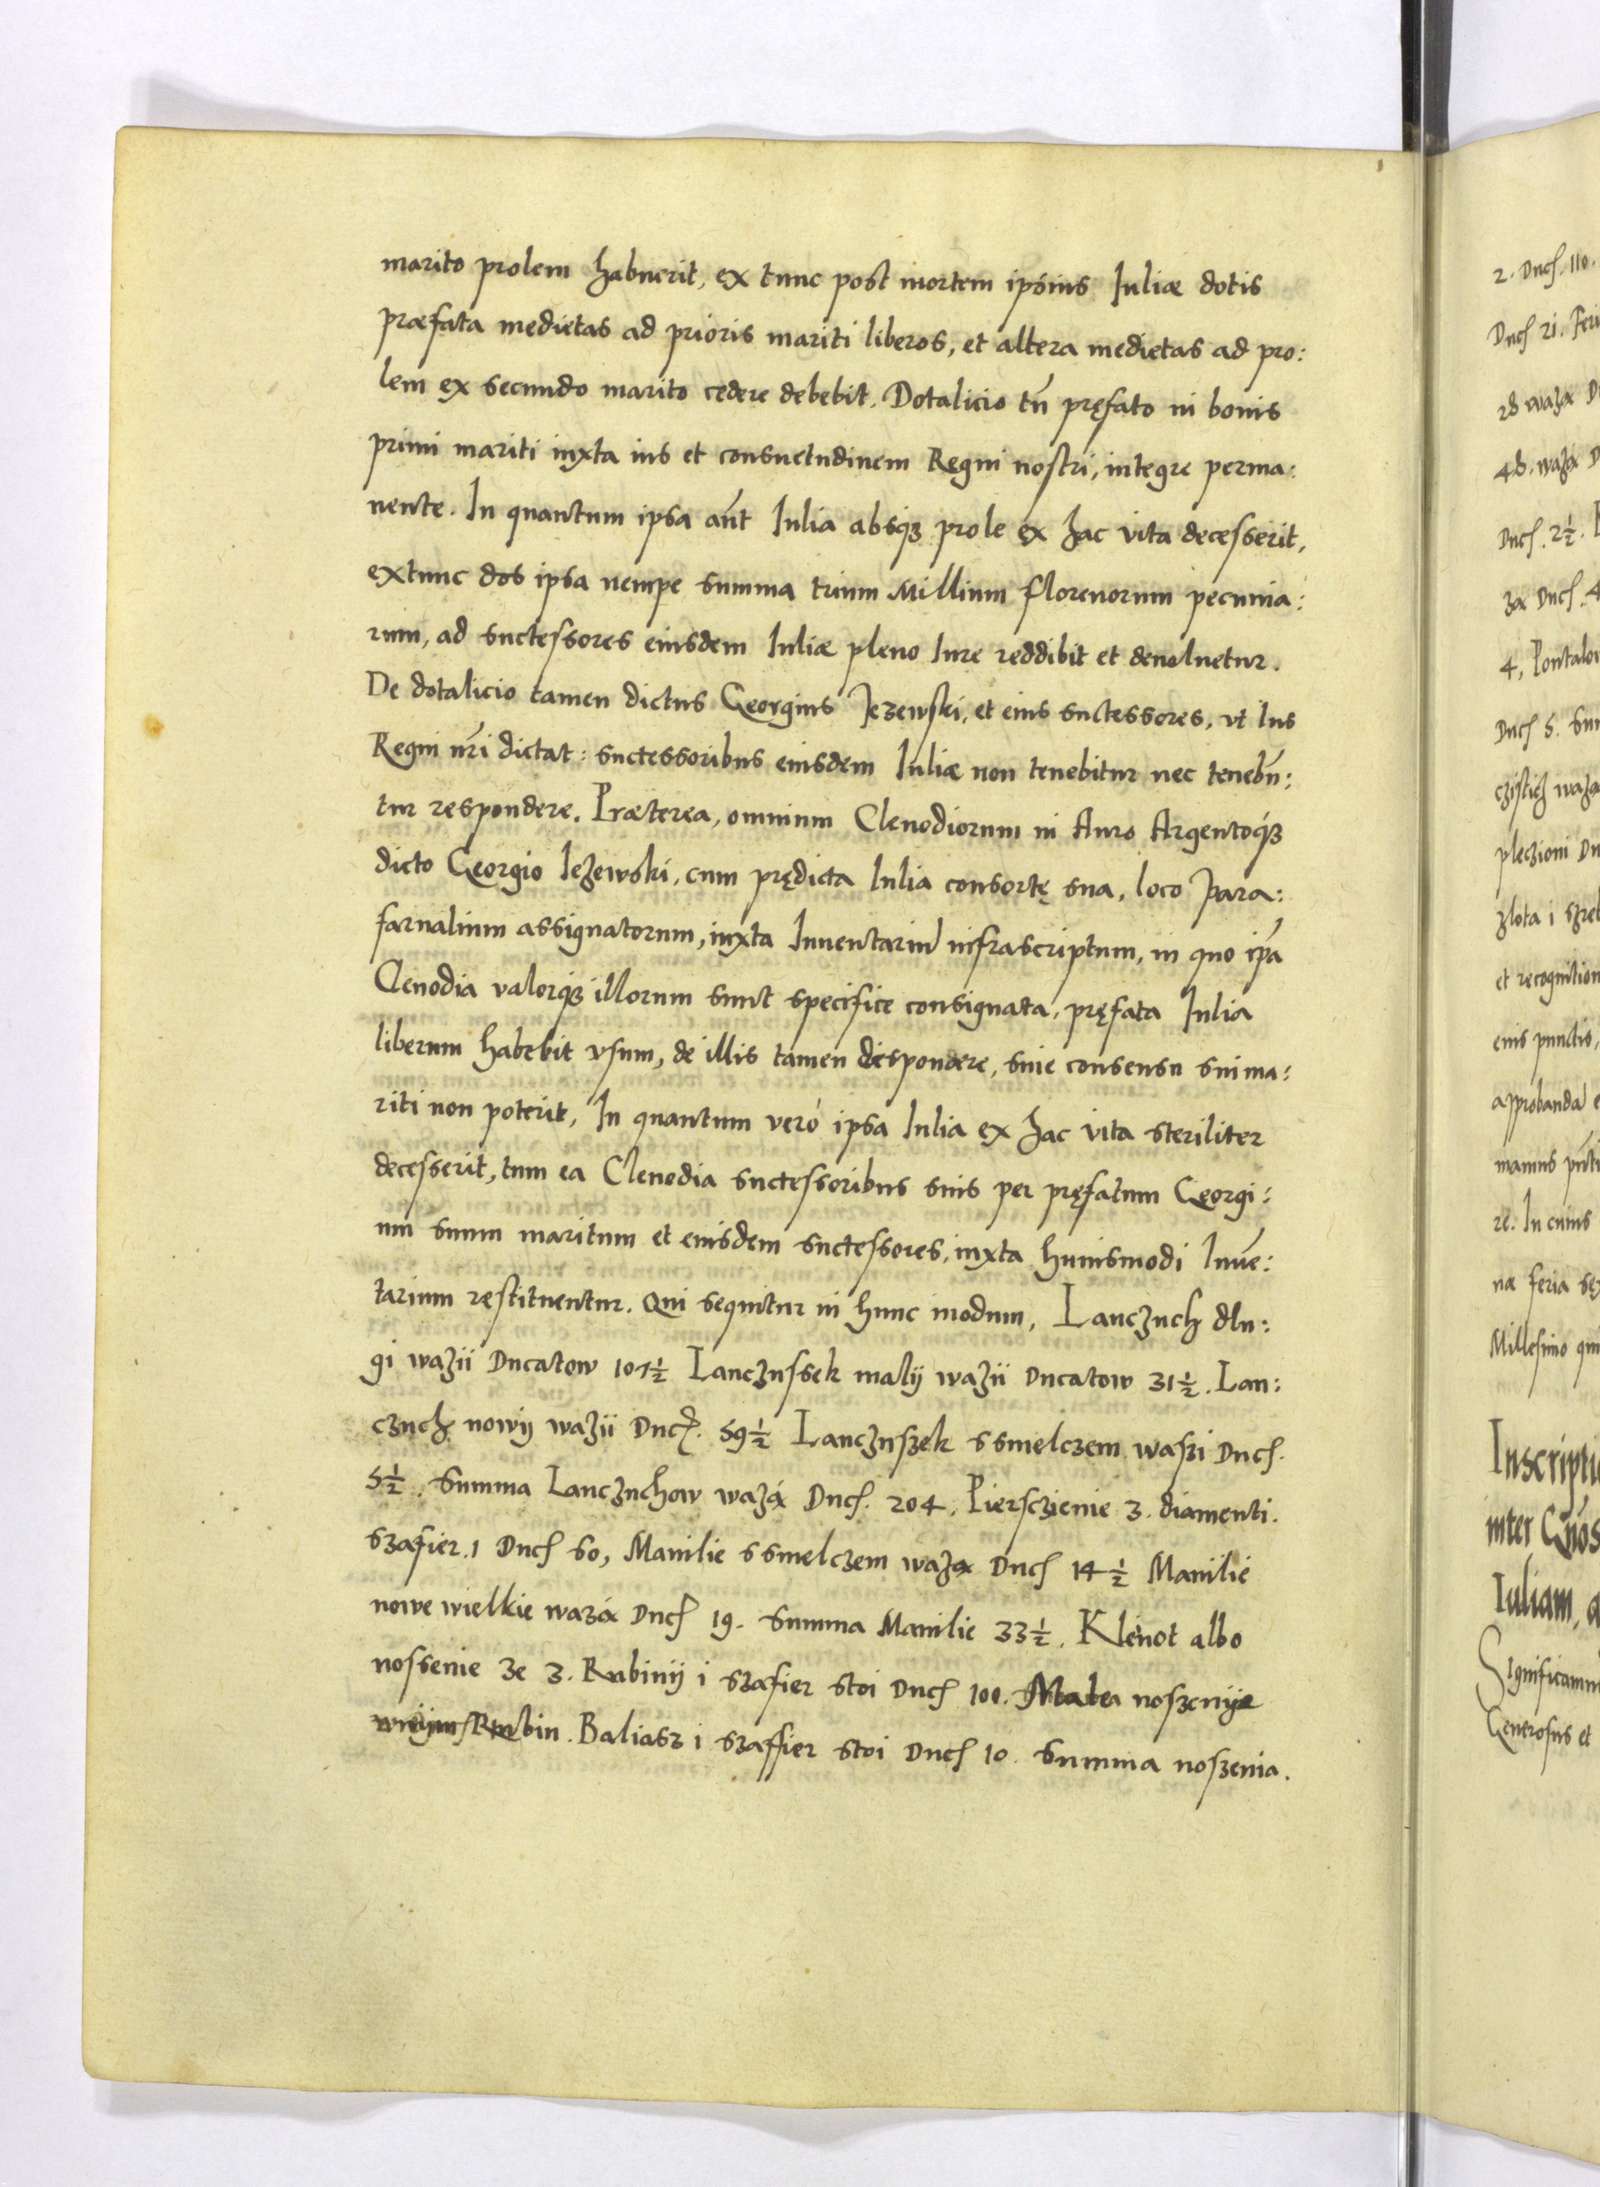 marito prolem habuerit, ex tunc post mortem ipsius Iuliæ dotis
præfata medietas ad prioris mariti liberos, et altera medietas ad pro:
lem ex secundo marito cedere debebit. Dotalicio tñ pręfato in bonis
primi mariti iuxta ius et consuetudinem Regni nostri, integre perma:
nente. In quantum ipsa aũt Iulia absqȝ prole ex hac vita decesserit,
extunc dos ipsa nempe summa trium Millium florenorum pecunia:
rum, ad suctessores eiusdem Iuliæ pleno Iure reddibit et devoluetur.
De dotalicio tamen dictus Georgius Jezewski, et eius suctessores, vt Ius
Regni nri dictat: suctessoribus eiusdem Iuliæ non tenebitur nec tenebũ:
tur respondere. Præterea, omnium Clenodiorum in Auro Argentoqȝ
dicto Georgio Ieżewski, cum prędicta Iulia consortę sua, loco Para:
farnalium assignatorum, iuxta Inuentariũ infrascriptum, in quo ipa
Clenodia valorqȝ illorum sunt specifice consignata, pręfata Iulia
liberum habebit vsum, de illis tamen disponere, sine consensu sui ma:
riti non poterit, In quantum verò ipsa Iulia ex hac vita steriliter
decesserit, tum ea Clenodia suctessoribus suis per pręfatum Georgi:
um suum maritum et eiusdem suctessores, iuxta huiusmodi Inuẽ:
tarium restituentur. Qui sequitur in hunc modum, Lanczuch dlu:
gi ważii Ducatow 107½ Lanczussek malÿ ważii Ducatow 31½. Lan:
czuch nowÿ ważii Duc. 59½ Lanczuszek ssmelczem waszi Duc.
5½. Summa Lanczuchow ważą Duc. 204. Piersczienie 3. diamenti.
szafier. 1 Duc 60, Manilie ssmelczem ważą Duc 14½ Manilie
nowe wielkie ważą Duc 19. Summa Manilie 33½. Klenot albo
nossenie ze 3. Rubinÿ i szafier stoi Duc 100. Male noszenÿe
wnÿm Rubin. Baliasz i szaffier stoi Duc 10. Summa noszenia.
2. Duc. 110.
Duc 21.
Duc. 2½.
4,
Duc 5.
zlota i
et recognition
eius punctis,
re. In cuius
na feria
Millesimo
Inscriptio
inter
Iuliam,
Significamus
Generosus et